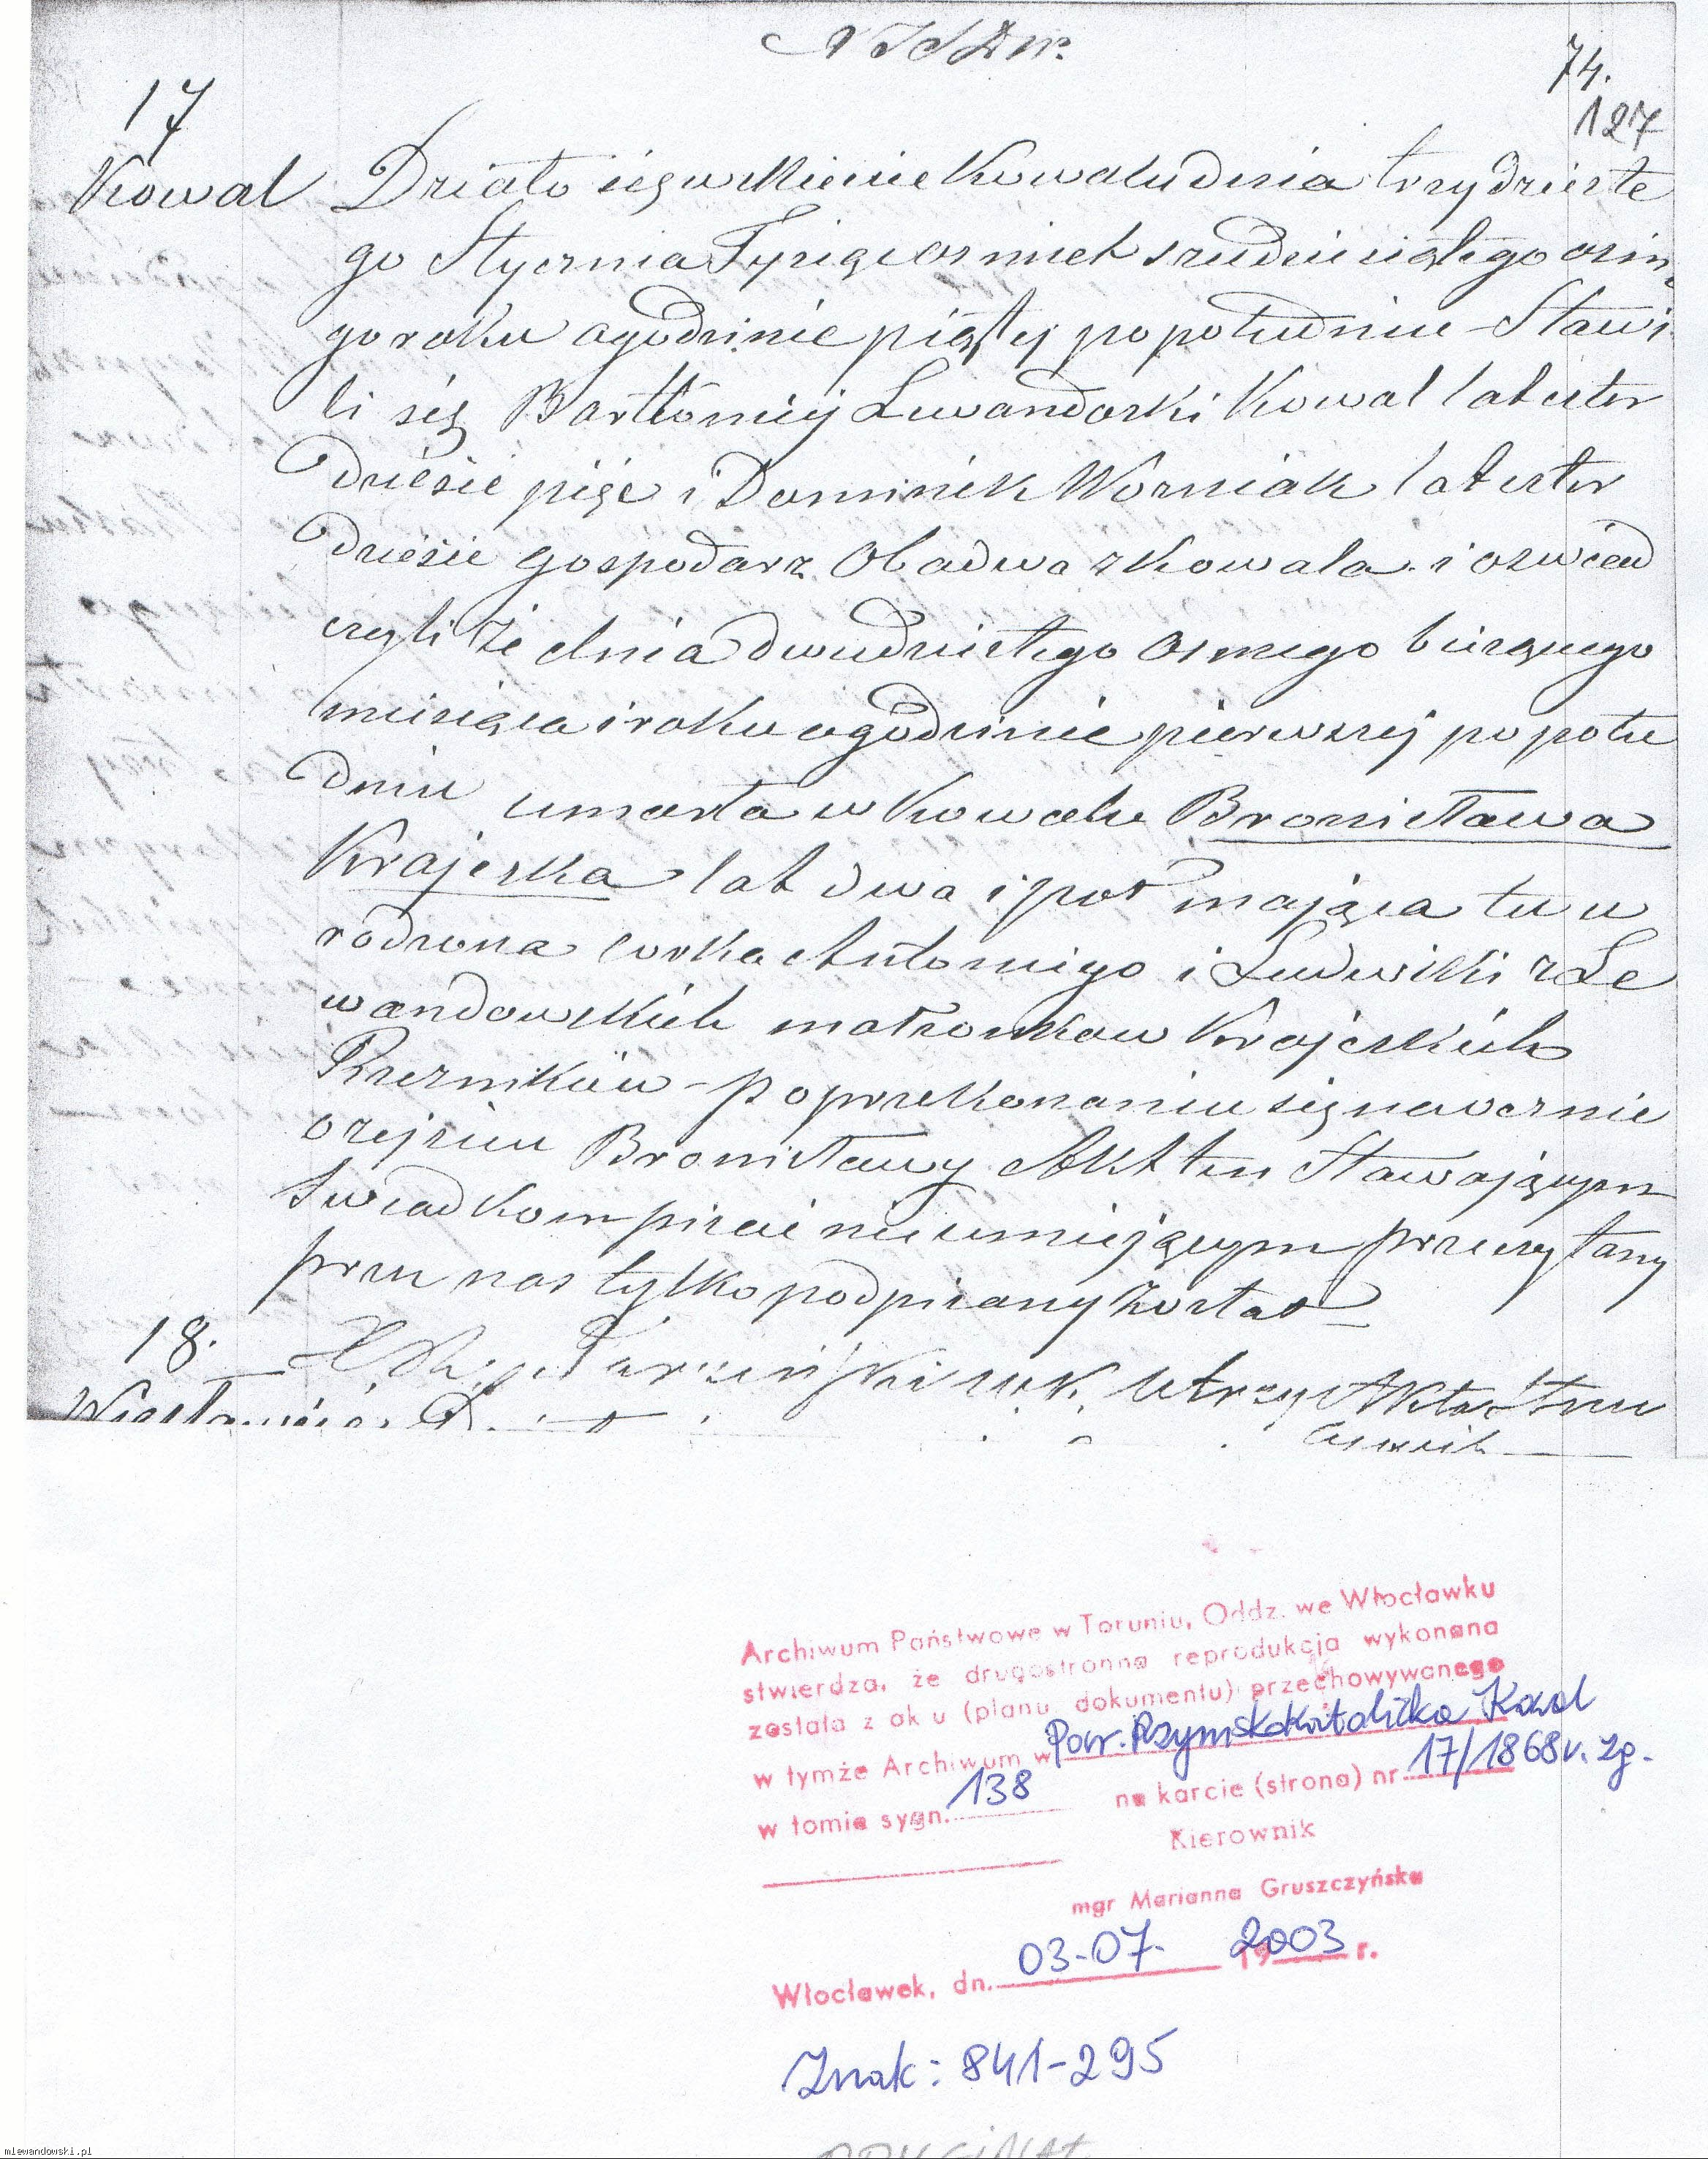 74.
127
17
Kowal
Działo się w Mieście Kowalu dnia trzydzieste
go Stycznia Tysiąc osmset szesdziesiątego osme
go roku o godzinie piątej po południu – Stawi
li się Bartłomiej Lewandoski Kowal lat czter
dzieście pięć i Dominik Wozniak lat czter
dzieście gospodarz obadwa z Kowala i oswiad
czyli że dnia dwudziestego osmego bieżącego
miesiąca i roku o godzinie pierwszej po połu
dniu umarła w Kowalu Bronisława
Krajeska lat dwa i poł mająca tu u
rodzona corka Antoniego i Ludwiki z Le
wandowskich małżonkow Krajeskich
Rzeznikow – po przekonaniu się naocznie
o zejściu Bronisławy Akt ten Stawającym
Swiadkom pisać nie umiejącym przeczytany
przez nas tylko podpisany został
18.
Utrzy Akta Stanu
Cywil
Archiwum Państwowe w Toruniu, Oddz. we Włocławku
stwierdza, że drugostronna reprodukcja wykonana
została z ak u (planu dokumentu) przechowywanego
w tymże Archiwum w Par. Rzymskokatolicka Kowal
w tomie sygn. 138 na karcie (strona) nr 17/1868 r. zg.
Kierownik
mgr Marianna Gruszczyńska
Włocławek, dn. 03-07- 2003 r.
Znak: 841-295
ORYGINAŁ
mlewandowski.pl